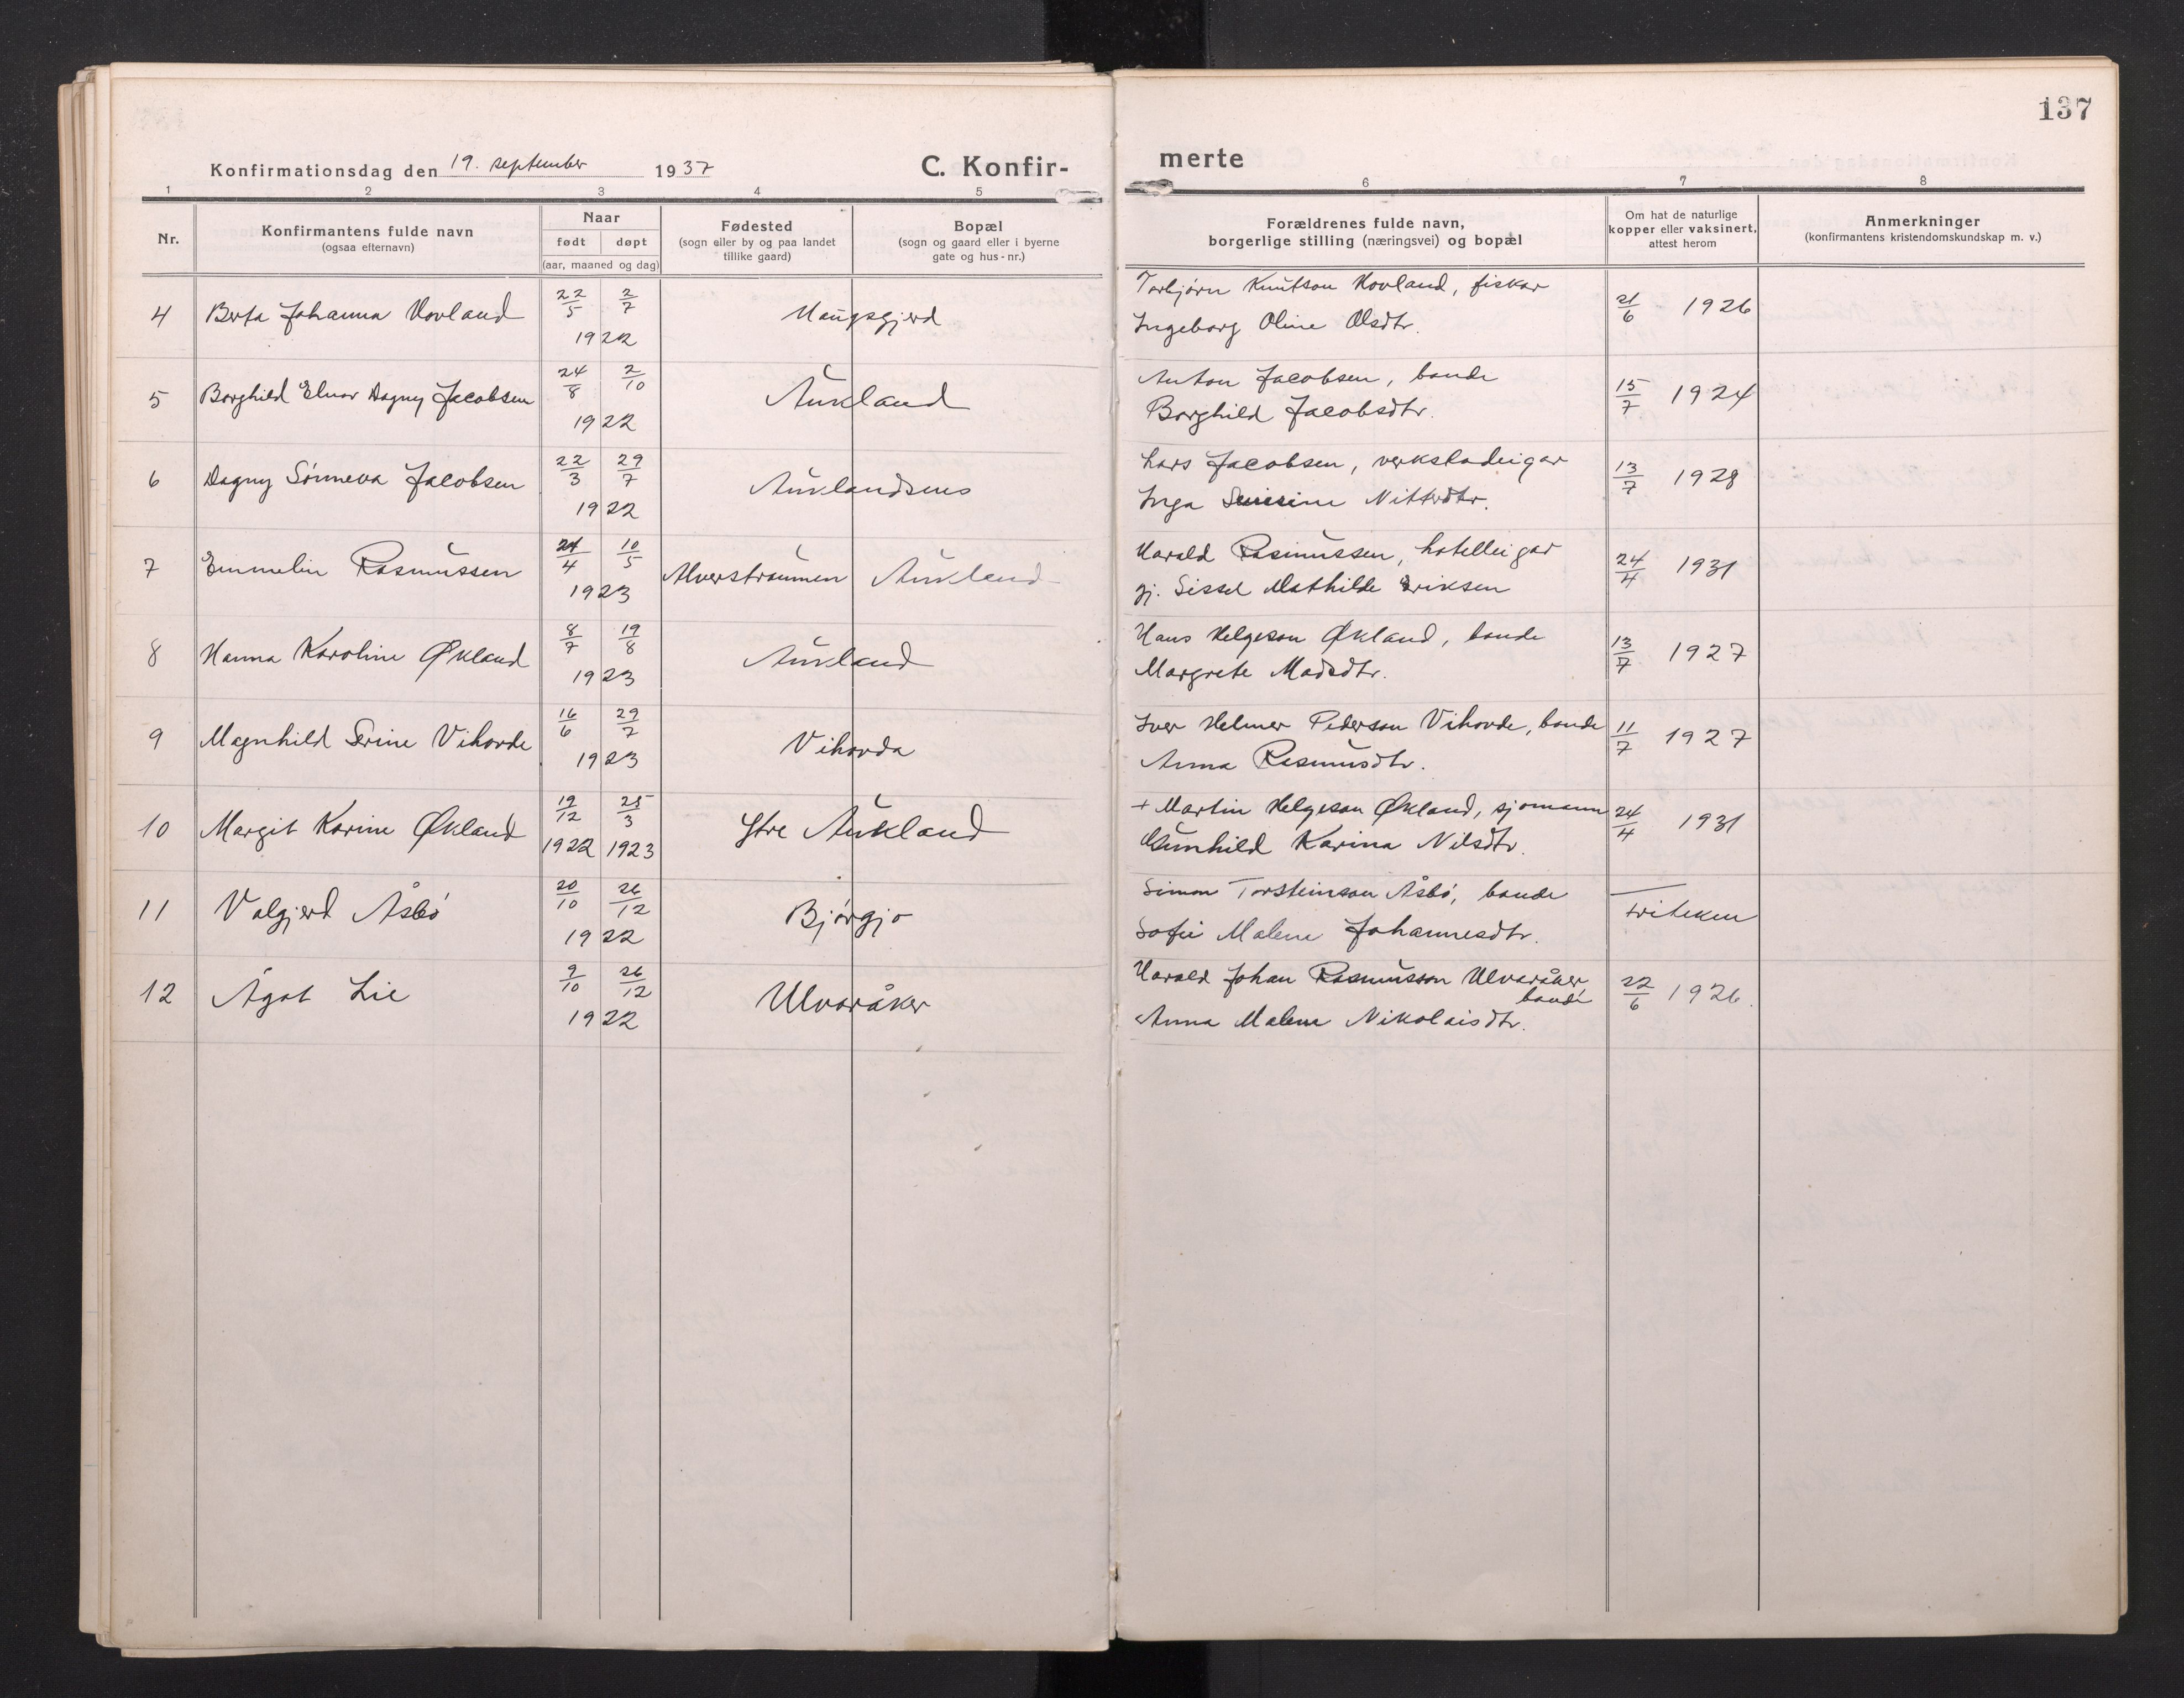 137
Konfirmationsdag den 19. september 1937 C. Konfir-
merte
1 2 3 4 5 6 7 8
Nr.
Konfirmantens fulde navn
(ogsaa efternavn)
Naar
født døpt
(aar, maaned og dag)
Fødested
(sogn eller by og paa landet
tillike gaard)
Bopæl
(sogn og gaard eller i byerne
gate og hus-nr.)
Forældrenes fulde navn,
borgerlige stilling (næringsvei) og bopæl
Om hat de naturlige
kopper eller vaksinert,
attest herom
Anmerkninger
(konfirmantens kristendomskundskap m. v.)
4 Berta Johanna Hovland 22/5 2/7 1922 Haugsgjerd
Torbjørn Knutson Hovland, fiskar
Ingeborg Oline Olsdtr.
21/6 1926
5 Borghild Elnor Dagny Jacobsen 24/8 2/10 1922 Aukland
Anton Jacobsen, bonde
Borghild Jacobsdtr.
15/7 1924
6 Dagny Sønneva Jacobsen 22/3 29/7 1922 Auklandsnes
Lars Jacobsen, verkstadeigar
Inga Nittrdtr.
13/7 1928
7 Emmelin Rasmussen 24/4 10/5 1923 Alverstraumen Aukland
Harald Rasmussen, hotelleigar
gj. Sissel Mathilde Eriksen
24/4 1931
8 Hanna Karoline Økland 8/7 19/8 1923 Aukland
Hans Helgeson Økland, bonde
Margrete Madsdtr.
13/7 1927
9 Magnhild Serine Vihovde 16/6 29/7 1923 Vihovda
Iver Helmer Pederson Vihovde, bonde
Anna Rasmusdtr.
11/7 1927
10 Margit Karine Økland 19/12 1922 25/3 1923 Ytre Aukland
+ Martin Helgeson Økland, sjømann
Gunhild Karina Nilsdtr.
24/4 1931
11 Valgjerd Åsbø 20/10 26/12 1922 Bjørgjo
Simon Torsteinson Åsbø, bonde
Sofie Malene Johannesdtr.
Friteken
12 Ågot Lie 9/10 26/12 1922 Ulvaråker
Harald Johan Rasmusson Ulvaråker,
bonde
Anna Malene Nikolaisdtr.
22/6 1926.